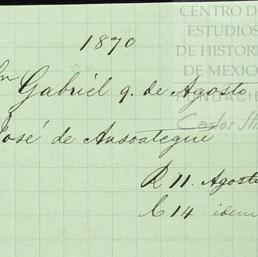 CENTRO DE
ESTUDIOS
DE HISTORI
DE MEXICO
FUNDACIÓ
Carlos Sli
1870
Sn
Gabriél 9. de Agosto
José de Ansoategui
R 11. Agosto
C 14 idem